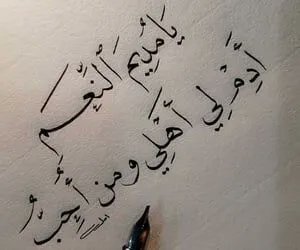 يَا مُدِيمَ ٱلنِّعَمِ
أَدِمْ لِي أَهْلِي وَمن أُحِبُّ